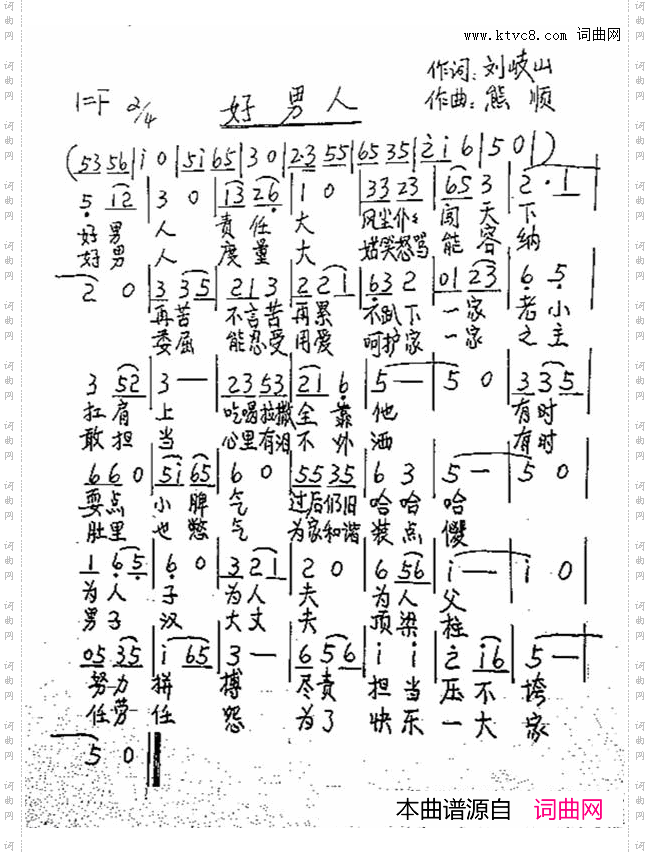 www.ktvc8.com 词曲网
作词:刘岐山
1=F 2/4 好男人 作曲:熊顺
(53 56|i 0|5i 65|3 0|2·3 55|65 35|2 i 6|5 0|)
5 12|3 0|13 26·|1 0|33 23|65 3|2·1|
好男人 责任大 风尘仆仆闯天下
好男人 度量大 姑笑怒骂能容纳
2 0|3 35|21 3|2 21|63 2|01 23|6 5|
再苦不言苦再累不趴下一家老小
委屈能忍受用爱呵护家一家之主
3 52|3 —|23 53|21 6|5 —|5 0|3 35|
扛肩上 吃喝拉撒全靠他 有时
敢担当 心里有泪不外洒 有时
66 0|5i 65|6 0|55 35|6 3|5 —|5 0|
耍点小脾气 过后仍旧哈哈哈
肚里也憋气 为家和谐装点傻
1 65|6 0|3 21|2 0|6 56|i —|i 0|
为人子 为人夫 为人父
男子汉 大丈夫 顶梁柱
05 35|i 65|3 —|6 56|i i|2 i6|5 —|
努力拼搏 尽责担当压不垮
任劳任怨 为了快乐一大家
5 0
本曲谱源自 词曲网
词曲网